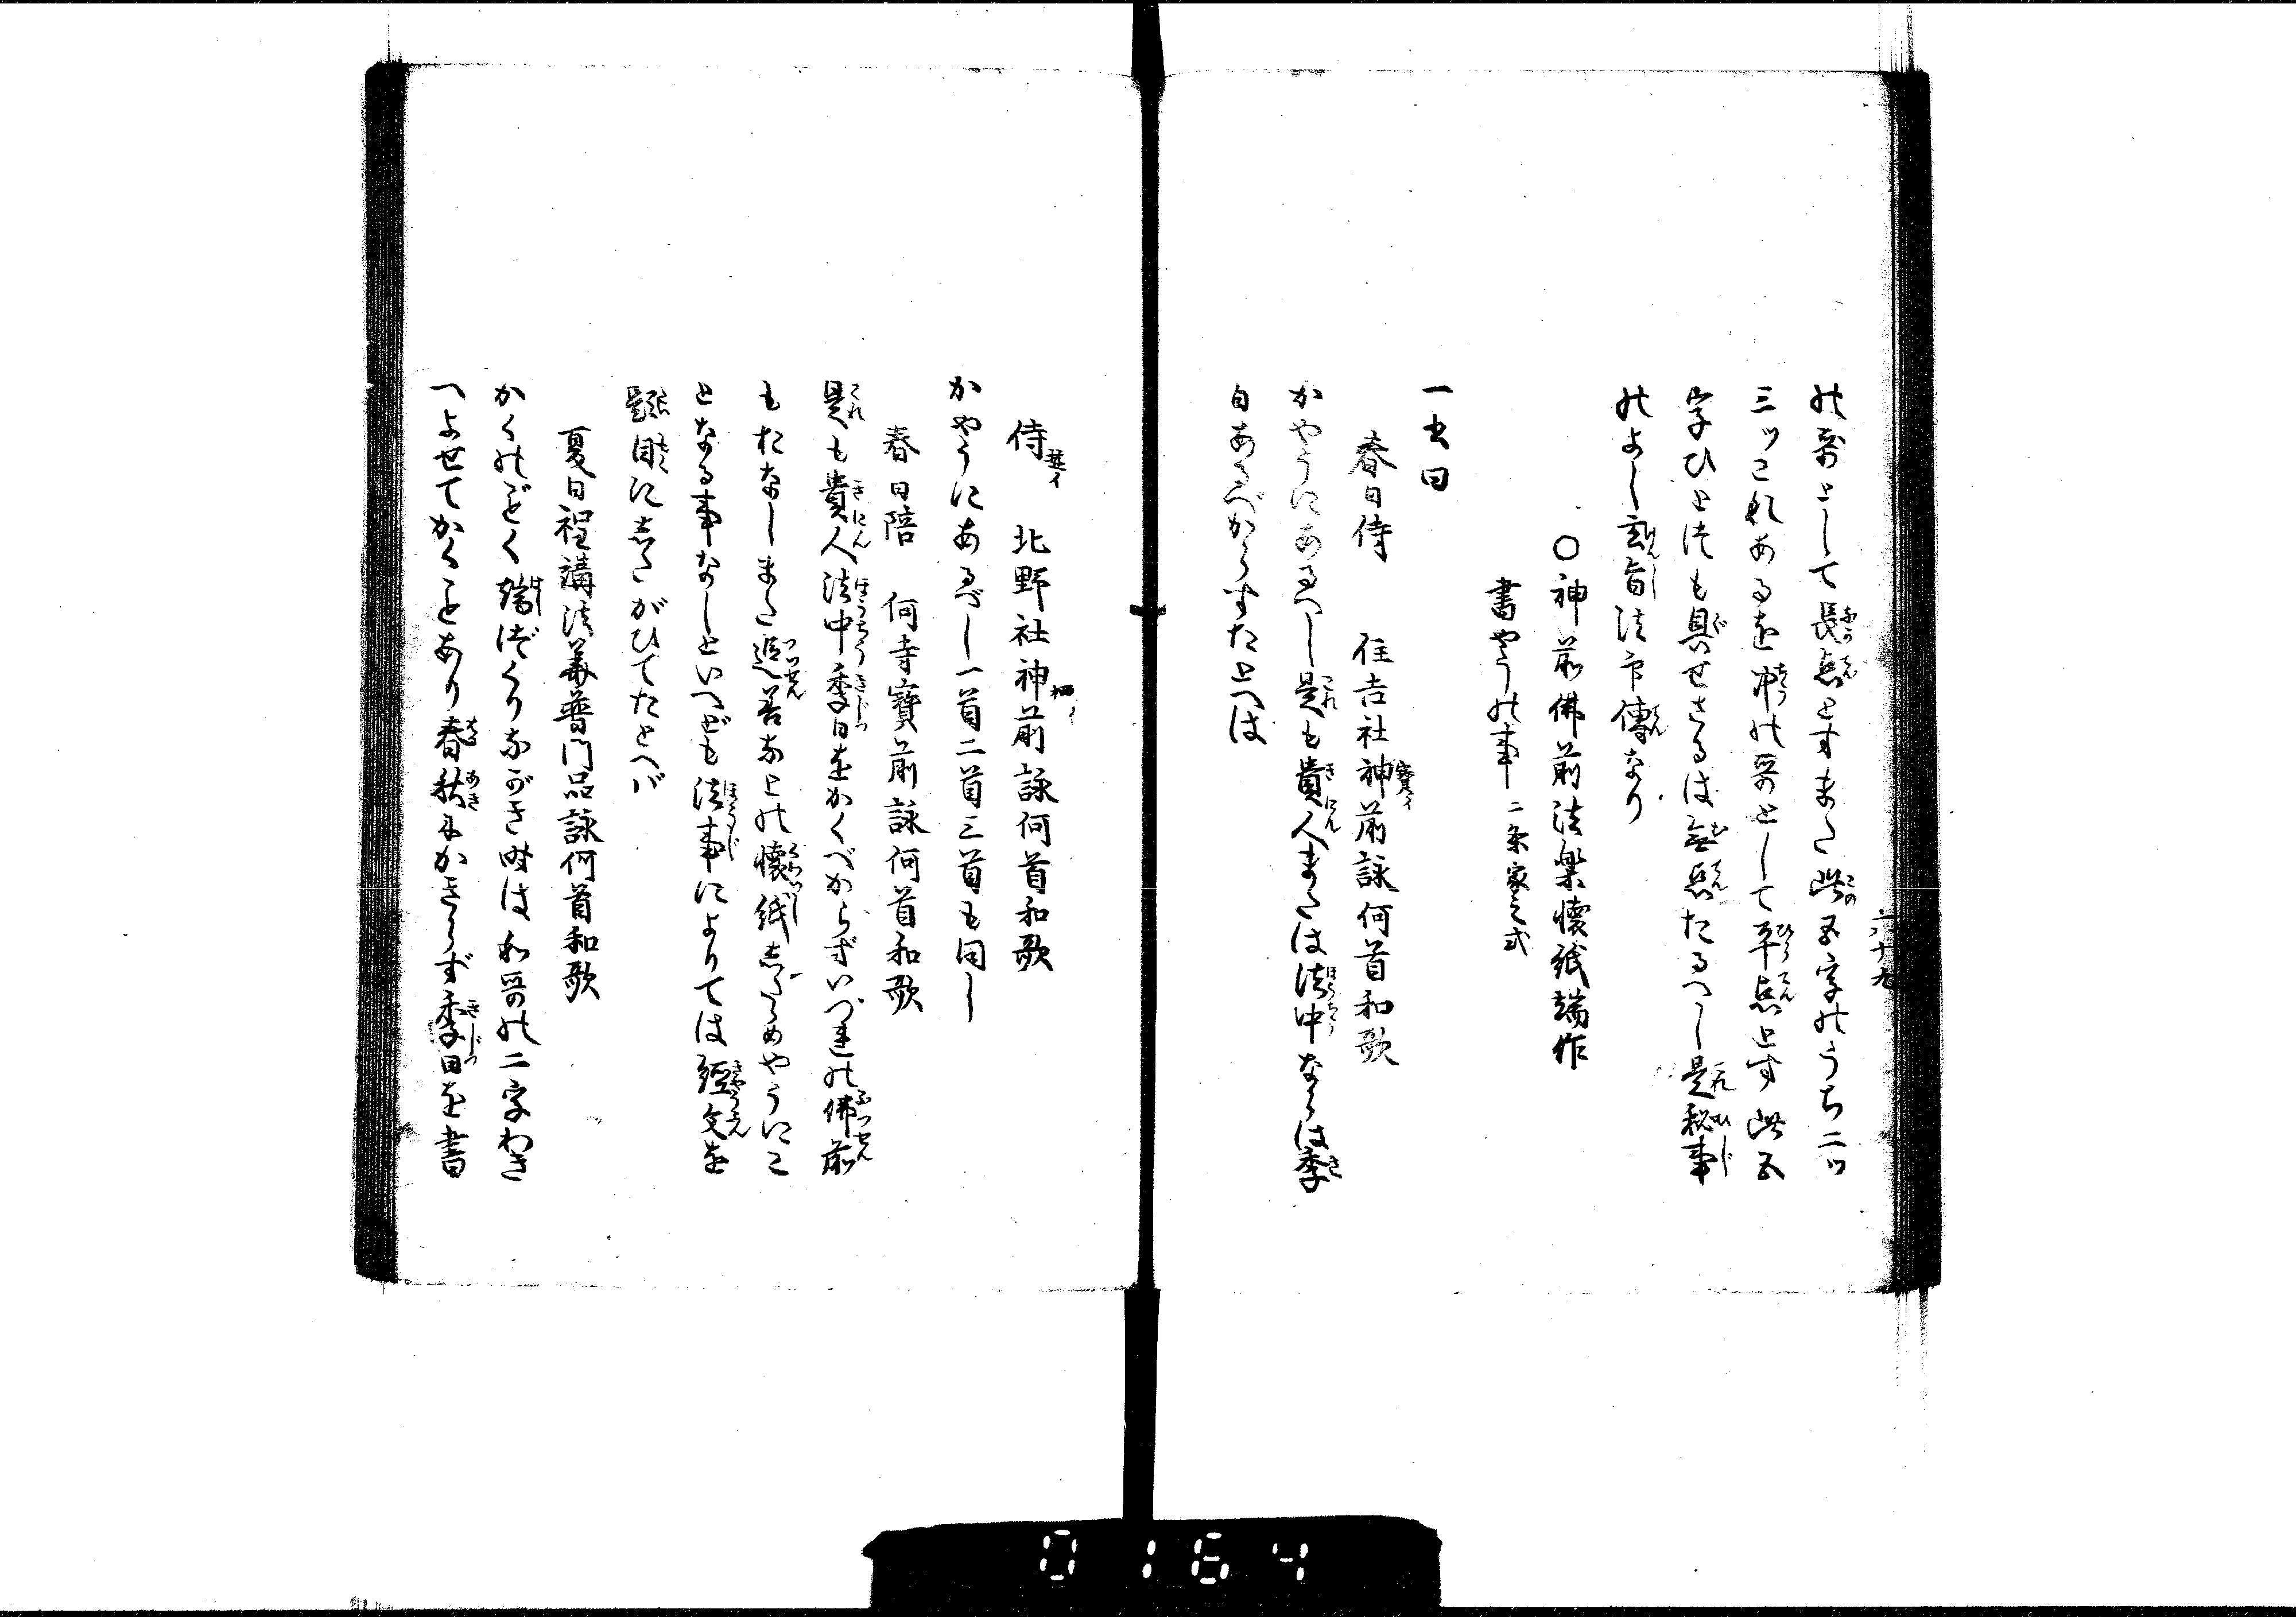 の哥として長点とすまた此五字のうち二ツ
三ツこれあるを中の哥として平点とす此五
字ひとつも具せさるは無点たるへし是秘事
のよし玄旨法印傳なり
○神前佛前法楽懐紙端作
書やうの事 二条家之式
一書曰
春日侍 住吉社神前詠何首和歌
かやうにあるへし是も貴人または法中ならは季
日あるべからすたとへは
侍 北野社神前詠何首和歌
かやうにあるべし一首二首三首も同し
春日陪 何寺寳前詠何首和歌
是も貴人法中季日をかくべからずいづれの佛前
もおなしまた追善なとの懐紙したゝめやうにこ
となる事なしといへども法事によりては經文を
題目にしたがひてたとへバ
夏日裎講法華普門品詠何首和歌
かくのごとく端づくりながき時は和哥の二字わき
へよせてかくとあり春秋にかきらず季日を書
六十九
0164